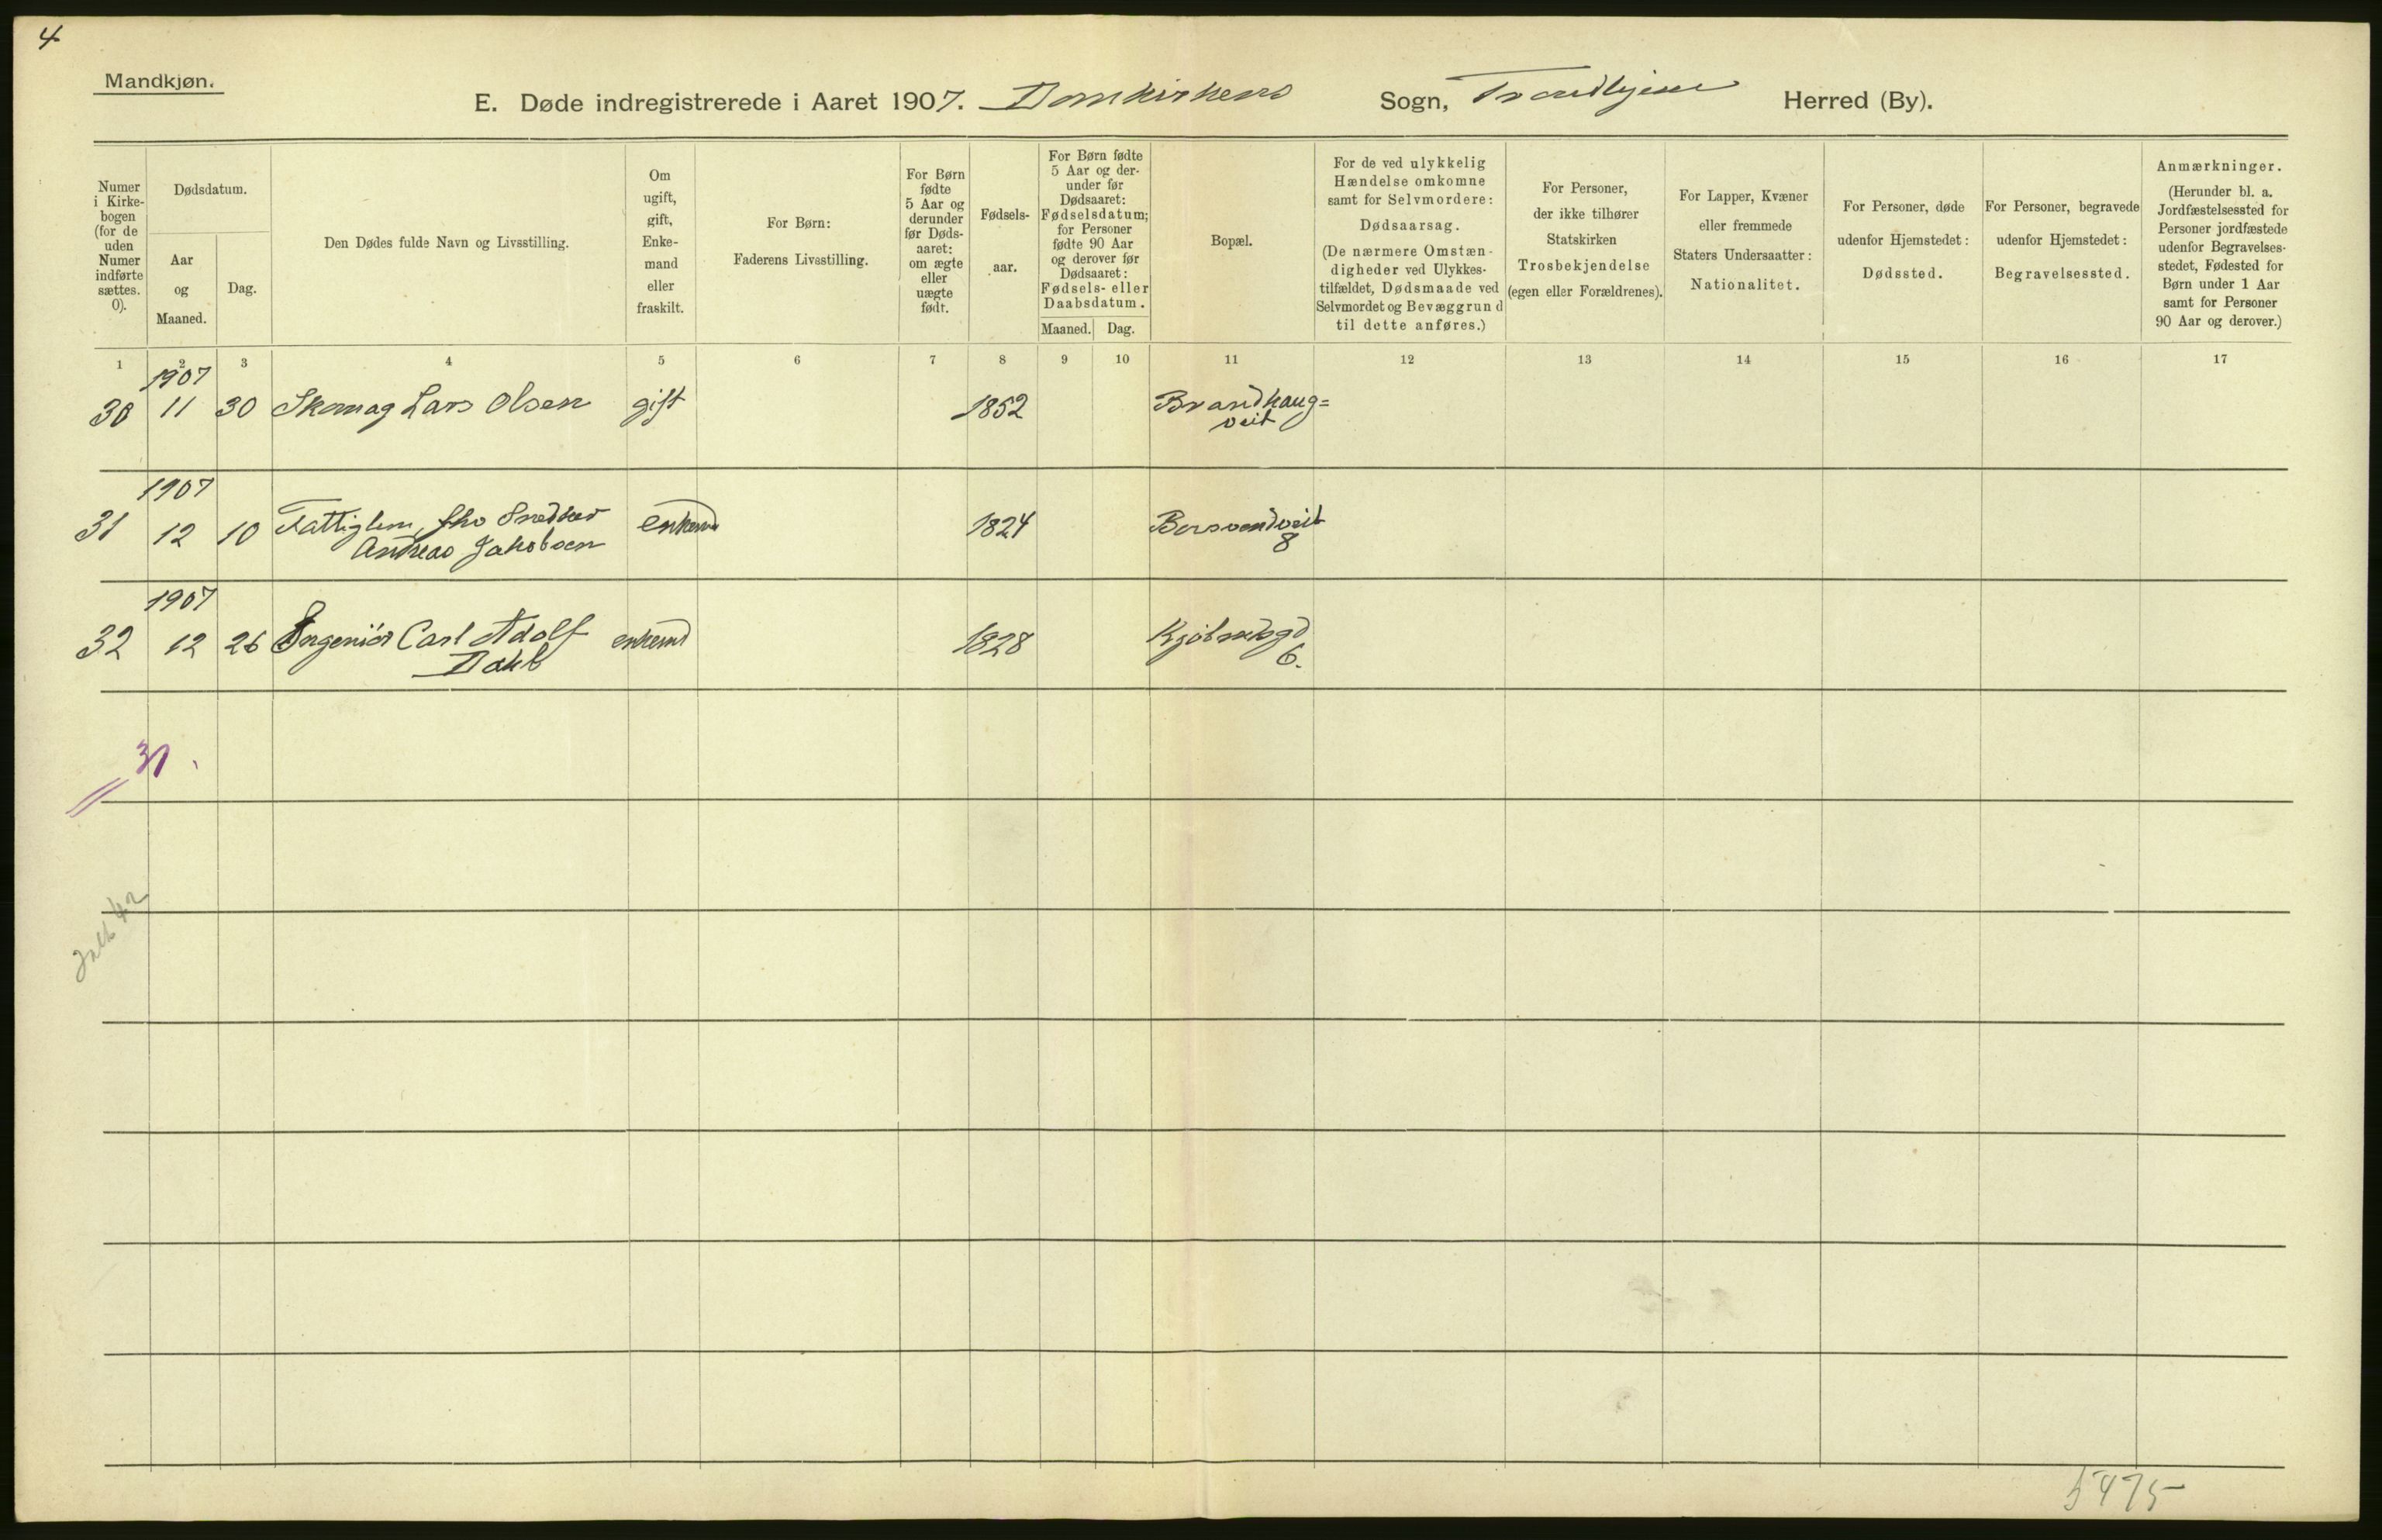 4
Mandkjøn.
E. Døde indregistrerede i Aaret 1907. Domkirkens Sogn, Trondhjem Herred (By).
Numer i Kirke-bogen (for de uden Numer indførte sættes. 0).
Dødsdatum.
Aar og Maaned.
Dag.
Den Dødes fulde Navn og Livsstilling.
Om ugift, gift, Enke-mand eller fraskilt.
For Børn: Faderens Livsstilling.
For Børn fødte 5 Aar og derunder før Døds-aaret: om ægte eller uægte født.
Fødsels-aar.
For Børn fødte 5 Aar og der-under før Dødsaaret: Fødselsdatum; for Personer fødte 90 Aar og derover før Dødsaaret: Fødsels- eller Daabsdatum.
Maaned. Dag.
Bopæl.
For de ved ulykkelig Hændelse omkomne samt for Selvmordere: Dødsaarsag. (De nærmere Omstæn-digheder ved Ulykkes-tilfældet, Dødsmaade ved Selvmordet og Bevæggrund til dette anføres.)
For Personer, der ikke tilhører Statskirken Trosbekjendelse (egen eller Forældrenes).
For Lapper, Kvæner eller fremmede Staters Undersaatter: Nationalitet.
For Personer, døde udenfor Hjemstedet: Dødssted.
For Personer, begravede udenfor Hjemstedet: Begravelsessted.
Anmærkninger. (Herunder bl. a. Jordfæstelsessted for Personer jordfæstede udenfor Begravelses-stedet, Fødested for Børn under 1 Aar samt for Personer 90 Aar og derover.)
1 2 3 4 5 6 7 8 9 10 11 12 13 14 15 16 17
1907
30 11 30 Skomag Lars Olsen gift 1852 Brandhaug=
veit
1907
31 12 10 Fattiglem, fhv Snedker enkemd 1824 Bersvendveit
Andreas Jakobsen 8
1907
32 12 26 Ingeniør Carl Adolf enkemd 1828 Kjøbmdsgd
Dahl 6.
31
42
5475